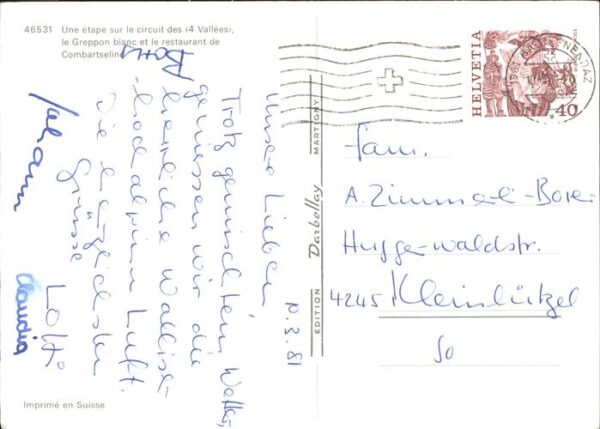 46531 Une étape sur le circuit des ‹4 Vallées›,
le Greppon blanc et le restaurant de
Combartseline
HELVETIA
40
Unsere Lieben
10.3.81
Trotz gemischtem Wetter,
geniessen wir die
herrliche Walliser-
hochalpine Luft.
Die herzlichsten
Grüsse
Lotti
Claudia
Johann
EDITION Darbellay MARTIGNY
Fam.
A. Zimmerli-Borer
Huggerwaldstr.
4245 Kleinlützel
So
Imprimé en Suisse